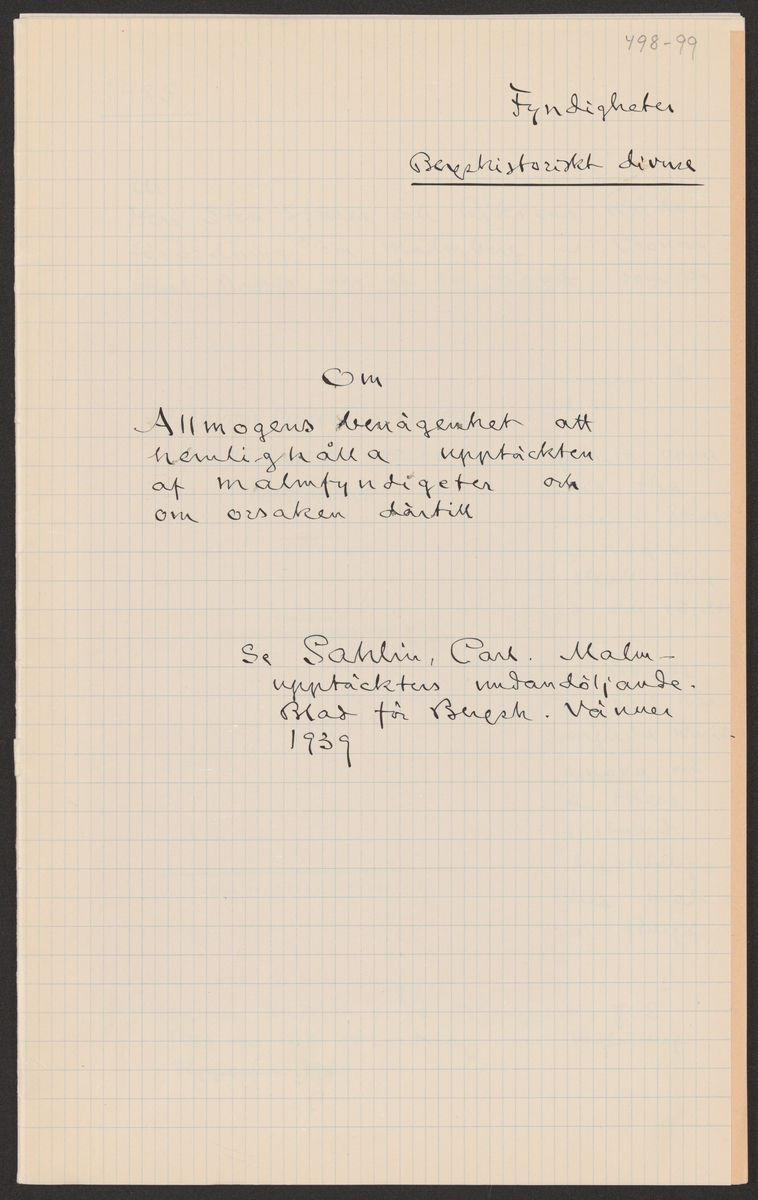 498-99
Fyndigheter
Bergshistoriskt diverse
Om
Allmogens benägenhet att
hemlighålla upptäckten
af malmfyndigeter och
om orsaken därtill
Se Sahlin, Carl. Malm-
upptäckters undandöljande.
Blad för Bergsh. Vänner
1939